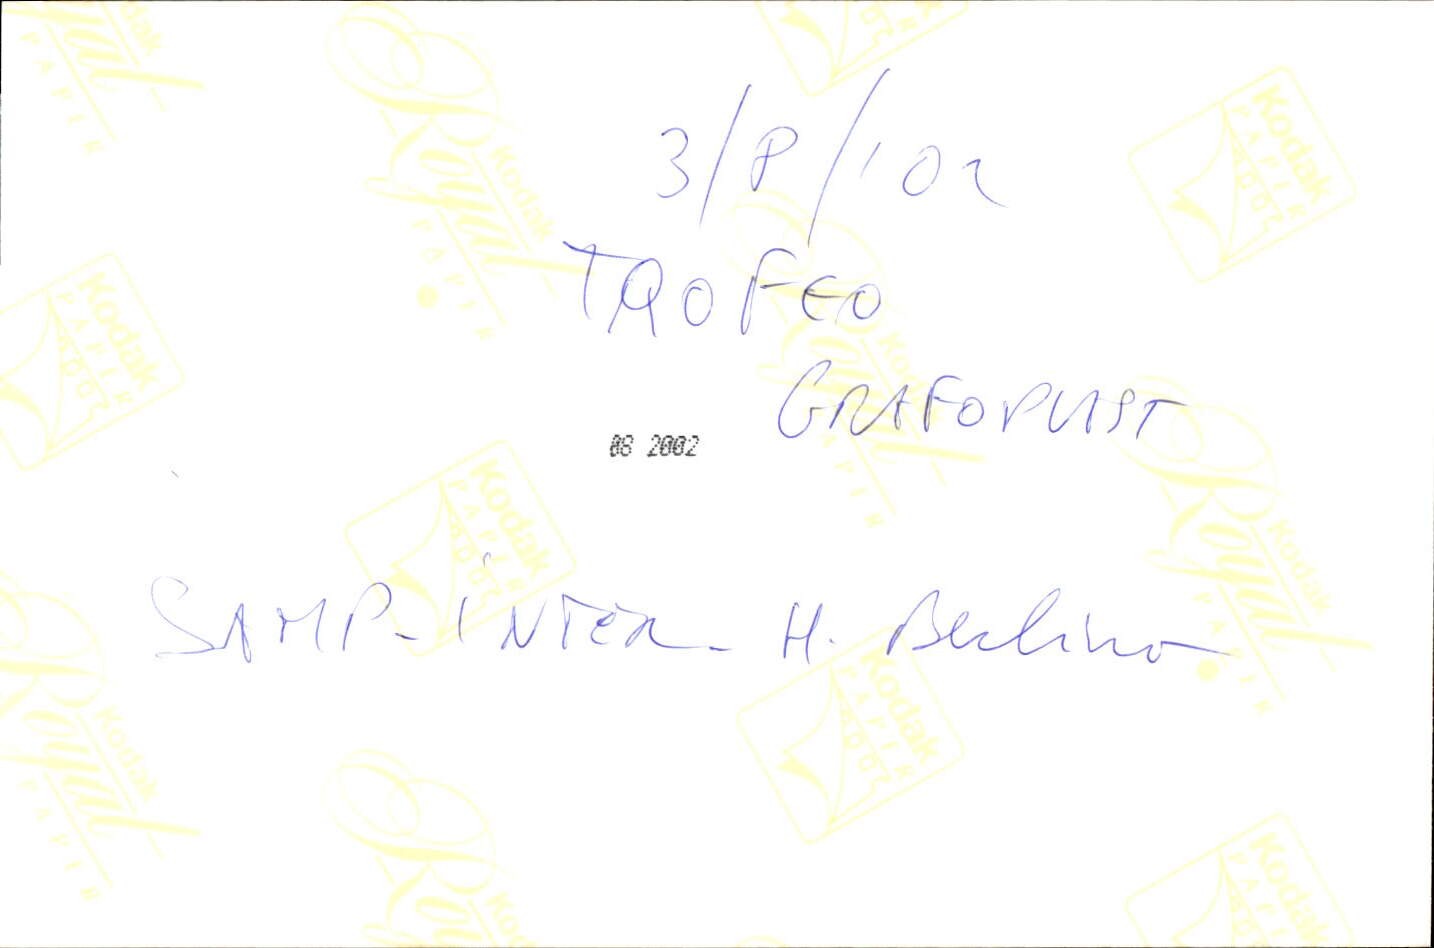 3/8/'02
TROFEO
GRAFOPLAST
08 2002
SAMP-INTER- H. Berlino
Kodak
Royal
PAPIER
Kodak
PAPIER